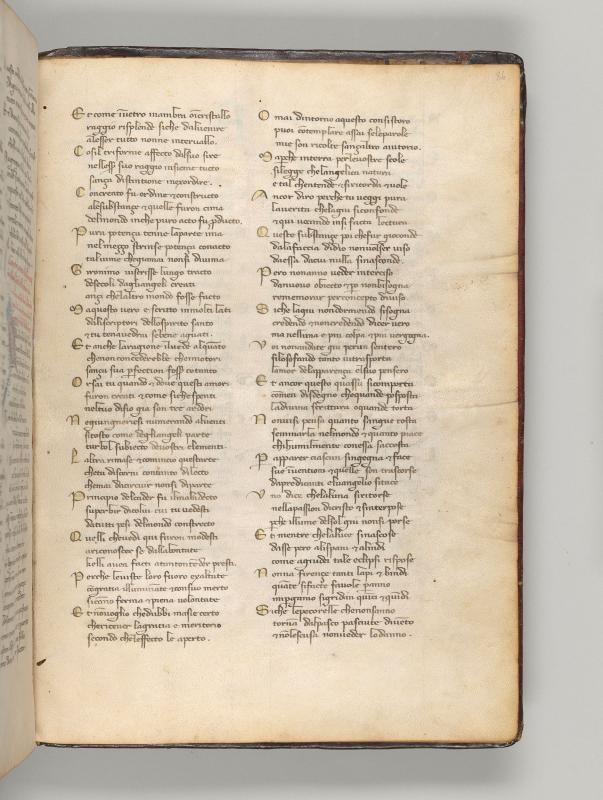 86
Et come inuetro inambra oincristallo
raggio risplende siche daluenire
alesser tutto nonne interuallo.
Cosil triforme affecto dalsuo sire
nellessr suo raggio insieme tucto
sança distintione inexordire.
Concreato fu ordine & constructo
alesubstançe & quelle furon cima
delmondo inche puro acto fu producto.
Pura potença tenne laparte ima
nel meço strinse potença conacto
tal uime chegiamai nonsi diuima
Geronimo uiscrisse lungo tracto
desecoli dagliangeli creati
ançi chelaltro mondo fosse facto
Ma questo uero e scritto inmolti lati
daliscriptori dellospirito santo
& tu tenauedrai sebene aguati.
Et anche laragione iluede alquanto
chenon concederebbe cheimotori
sança sua perfection fosser cotanto
Orsai tu quando & doue questi amori
furon creati & come siche spenti
neltuo disio gia son tre ardori
Ne giugneriesi numerando aluenti
sitosto come degliangeli parte
turbol subiecto deuostri elementi.
Laltra rimase & comincio questarte
chetu discerni contanto dilecto
chemai dacircuir nonsi diparte
Principio delcader fu ilmaladecto
superbir dicolui cui tu uedesti
datutti pesi delmondo constrecto
Quelli cheuedi qui furon modesti
ariconoscer se dallabontate
che li auea facti atantontender presti.
Perche leuiste loro fuoro exaltate
congratia illuminate & conluo merto
sicanno ferma & piena uolontate
Et nonuoglio chedubbi masie certo
chericeuer lagratia e meritorio
secondo cheleffecto le aperto.
Omai dintorno aquesto consistoro
puoi contemplare assai seleparole
mie son ricolte sançaltro aiutorio.
Ma perche interra perleuostre scole
silegge chelangelica natura
e tal chentende & siricorda & uole
Ancor diro perche tu ueggi pura
lauerita chelagiu siconfonde
& qui uocando insi facta lectura
Queste substançe poi chefur gioconde
dalafaccia didio nonuolser uiso
daessa dacui nulla sinasconde.
Pero nonanno ueder interciso
danuouo obiecto & pero nonbisogna
rememorar perconcepto diuiso.
Siche lagiu nondormendo sisogna
credendo & noncredendo dicer uero
ma nelluno e piu colpa & piu uergogna.
Voi nonandate giu perun sentero
filosofando tanto uitrasporta
lamor dellapparença elsuo pensero
Et ancor questo quassu sicomporta
conmen disdegno chequando posposta
ladiuina scrittura oquando torta
Nonuisi pensa quanto sangue costa
seminarla nelmondo & quanto piace
chihumilmente conessa saccosta
Per apparer ciascun singegna & face
sue inuentioni & quelle son trascorse
dapredicanti eluangelio sitace
Vno dice chelaluna siritorse
nellapassion dicristo & sinterpose
perche illume delsol giu nonsi porse
Et mentre chelaluce sinascose
dasse pero alispani & alindi
come agiudei tale eclipsi rispose
Nonna firençe tanti lapi & bindi
quante sifacte fauole panno
inpergamo sigridan quinci & quindi
Siche lepecorelle chenonsanno
tornan dalpasco pasciute diuento
& nolescusa nonueder lodanno.